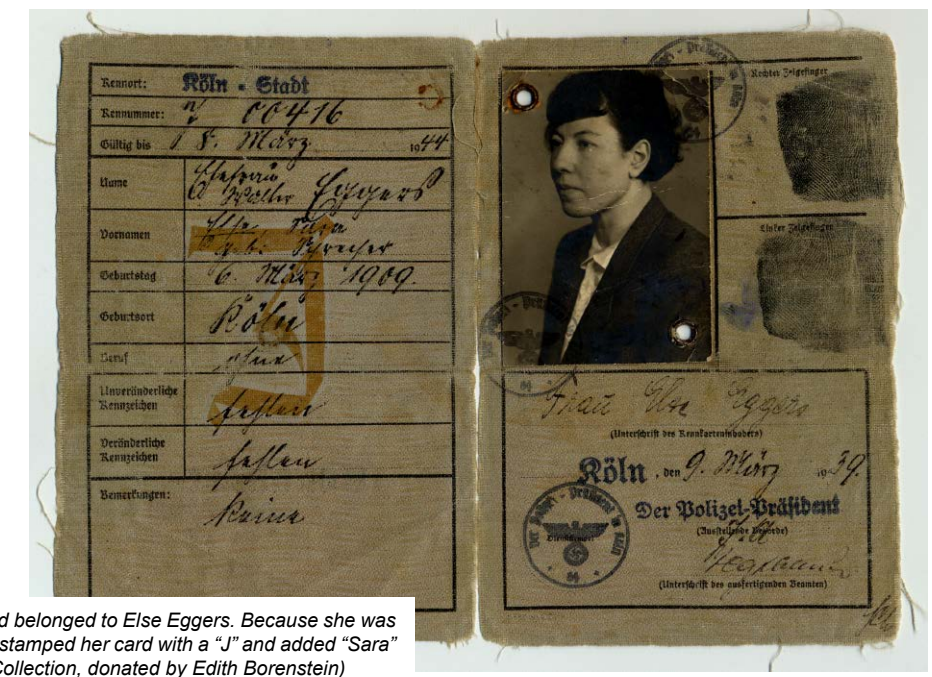 Kennort: Köln - Stadt
Kennummer: 00416
Gültig bis 8. März 1944
Name Ehefrau
Walter Eggers
Vornamen Else Sara
geb.
Geburtstag 6. März 1909.
Geburtsort Köln
Beruf ohne
Unveränderliche
Kennzeichen fehlen
Veränderliche
Kennzeichen fehlen
Bemerkungen: keine
J
Rechter Zeigefinger
Linker Zeigefinger
Frau Else Eggers
(Unterschrift des Kennkarteninhabers)
Köln, den 9. März 1939.
Der Polizei-Präsident
(Ausstellende Behörde)
(Unterschrift des ausfertigenden Beamten)
Der Polizei-Präsident in Köln
84
belonged to Else Eggers. Because she was
stamped her card with a “J” and added “Sara”
Collection, donated by Edith Borenstein)